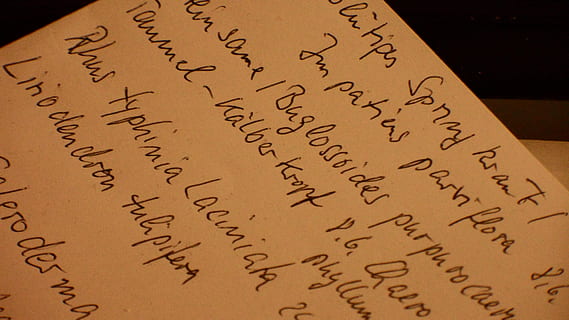 blütiges Springkraut /
Impatiens parviflora 8.6.
einsame / Buglossoides purpurocaeru
Taumel-Kälberkropf 8.6. Chaero
phyllum
Rhus typhinia Laciniata
Liriodendron tulipifera
Scleroderma